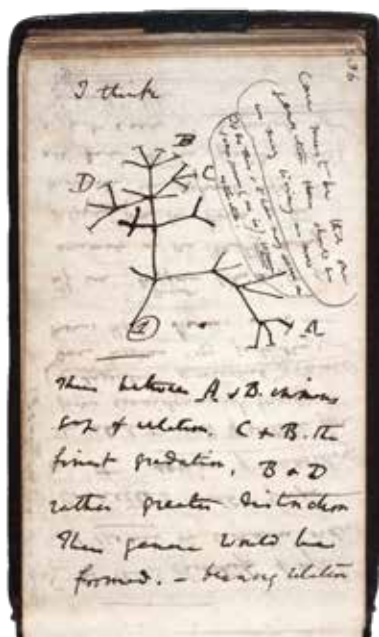 36
I think
Case must be that one
generation then should be
as many living as now
To do this & to have many species in
same genus (as is) requires
extinction
B
C
D
1
A
Thus between A & B. immense
gap of relation. C & B. the
finest gradation, B & D
rather greater distinction
Thus genera would be
formed. — bearing relation